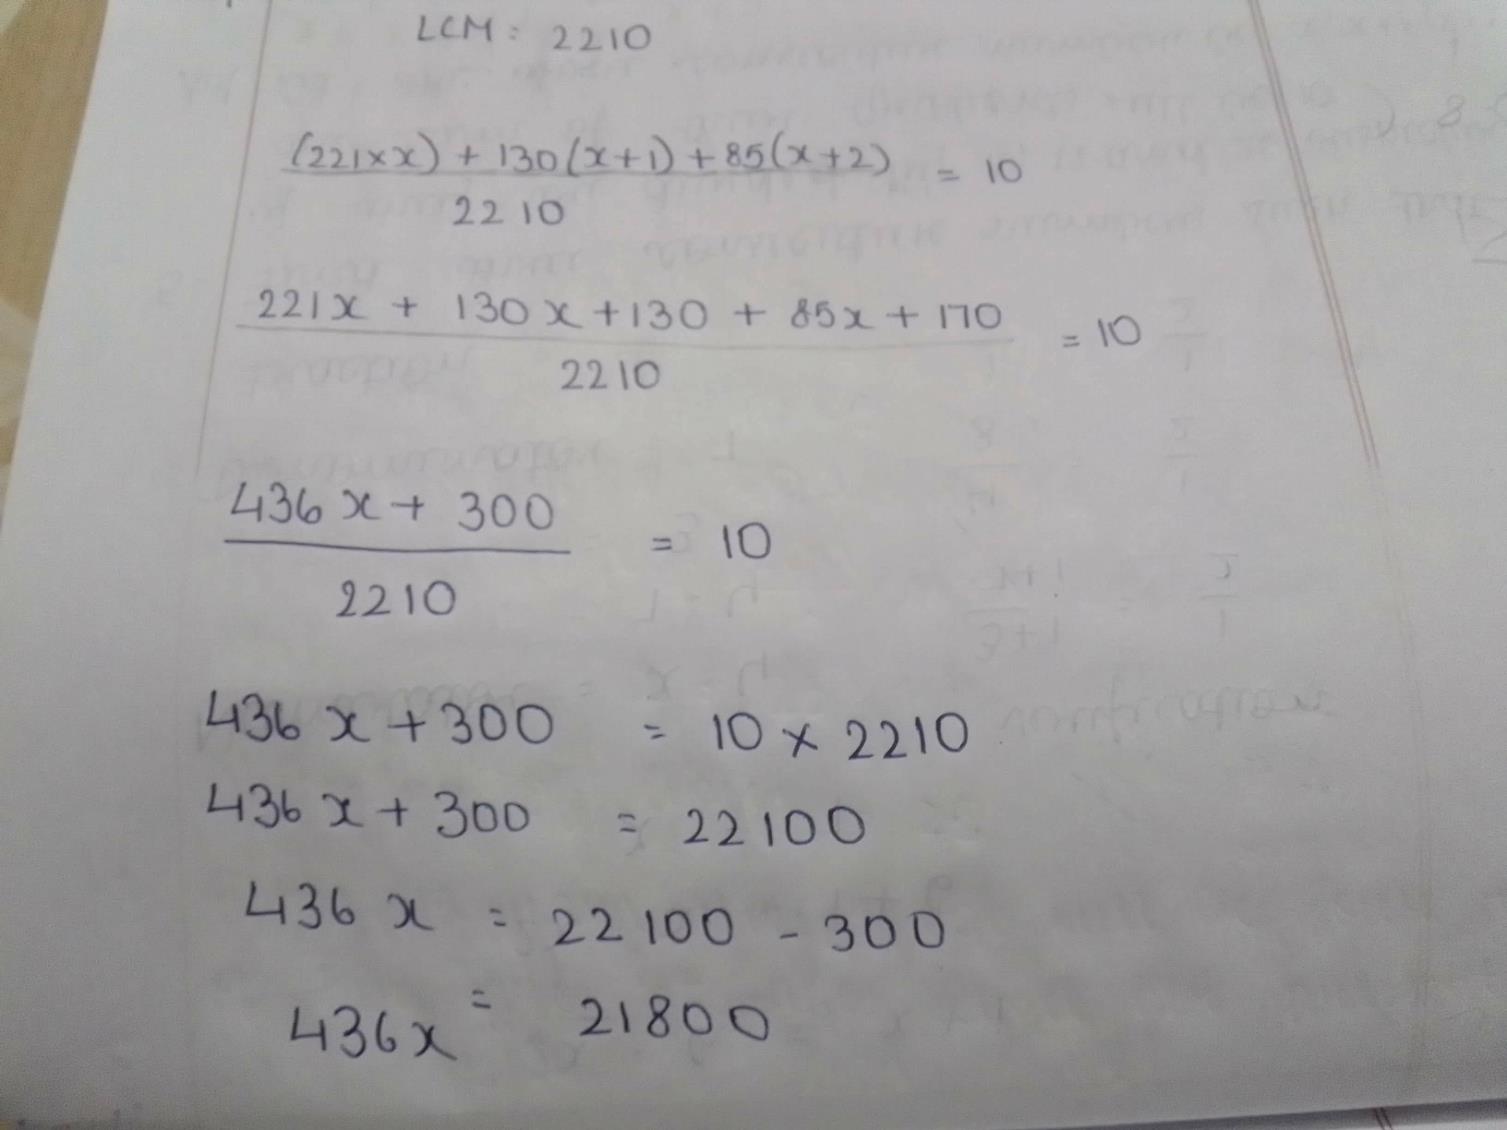 LCM: 2210
(221×x) + 130(x+1) + 85(x+2) = 10
2210
221x + 130x + 130 + 85x + 170 = 10
2210
436x + 300 = 10
2210
436x + 300 = 10 × 2210
436x + 300 = 22100
436x = 22100 - 300
436x = 21800